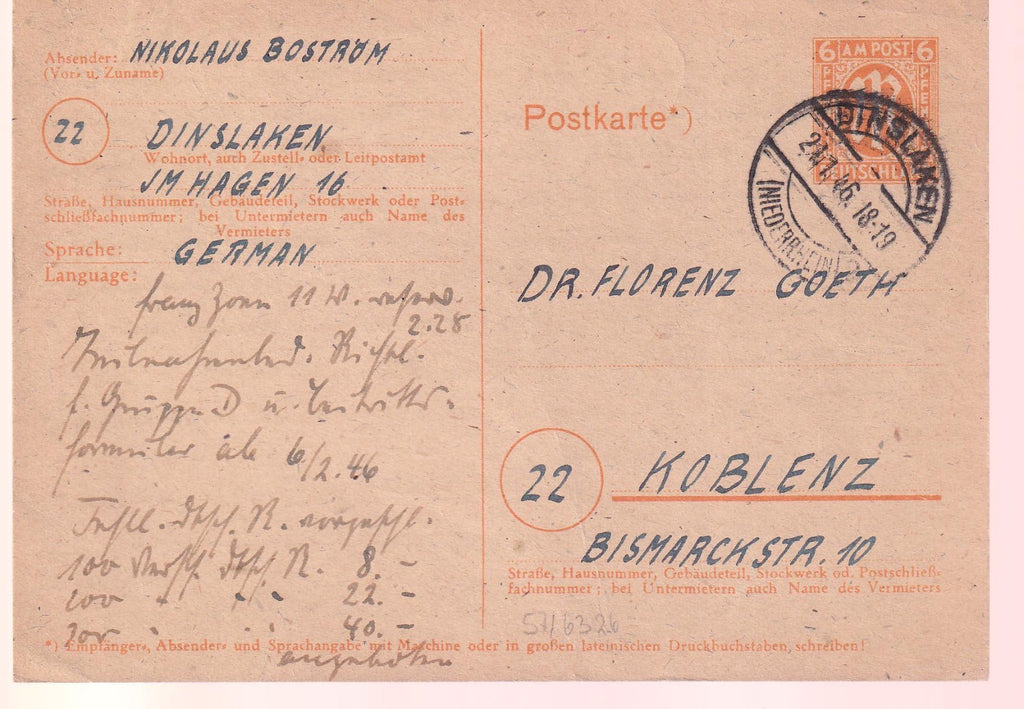 Absender: NIKOLAUS BOSTRÖM
(Vor- u. Zuname)
22 DINSLAKEN
Wohnort, auch Zustell- oder Leitpostamt
JM HAGEN 16
Straße, Hausnummer, Gebäudeteil, Stockwerk oder Post-
schließfachnummer; bei Untermietern auch Name des
Vermieters
Sprache: GERMAN
Language:
franz Zonen 11 W.
2.28
f. Gruppe D u. Beitritts-
formular ab 6/2.46
dtsch. R. vorgeschl.
100 versch. dtsch. R. 8.-
200 " " " 22.-
300 " " 40.-
angeboten
Postkarte*)
6 AM POST 6
DEUTSCHL
DINSLAKEN
24.7.46.18-19
(NIEDERRHEIN)
DR. FLORENZ GOETH
22 KOBLENZ
BISMARCKSTR. 10
Straße, Hausnummer, Gebäudeteil, Stockwerk od. Postschließ-
fachnummer; bei Untermietern auch Name des Vermieters
57/6326
*) Empfänger-, Absender- und Sprachangabe mit Maschine oder in großen lateinischen Druckbuchstaben, schreiben!